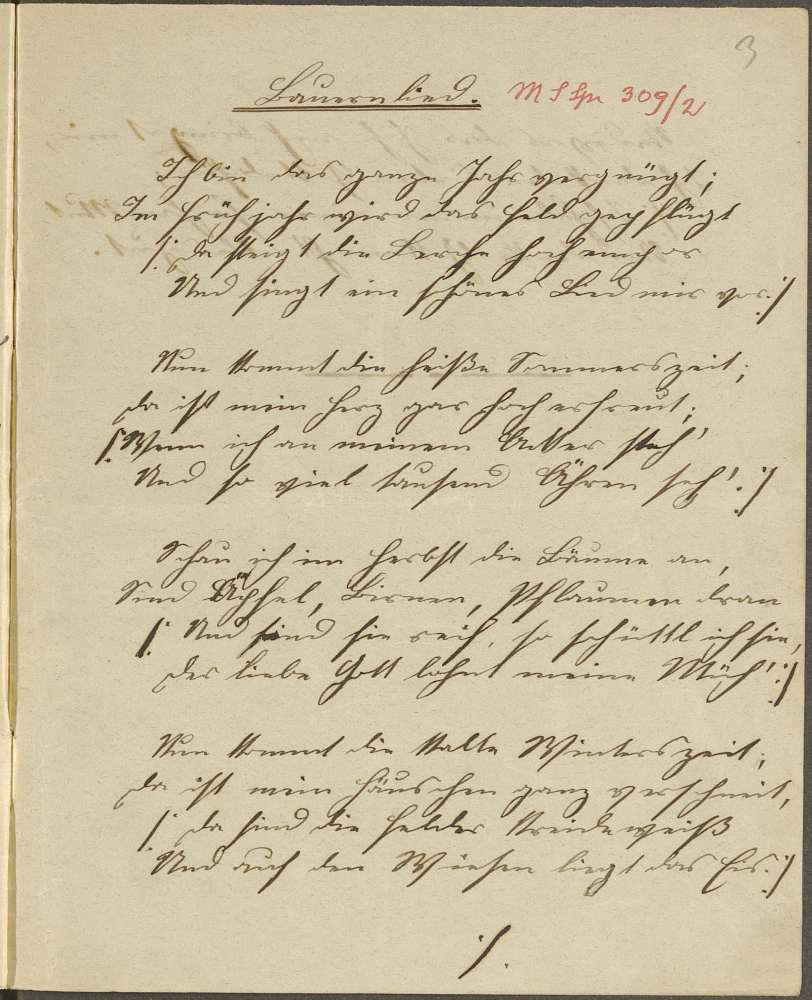 3
Bauernlied. M S Sp 309/2
Ich bin das ganze Jahr vergnügt;
Im Frühjahr wird das Feld gepflügt
/: Da steigt die Lerche hoch empor
Und singt ein schönes Lied mir vor. :/
Nun kommt die heiße Sommerszeit;
Da ist mein Herz gar hoch erfreut;
/: Wenn ich an meinem Acker steh'
Und so viel tausend Ähren seh'. :/
Schau ich im Herbst die Bäume an,
Sind Äpfel, Birnen, Pflaumen dran
/: Und sind sie reif, so schüttl ich sie,
Der liebe Gott lohnt meine Müh'! :/
Nun kommt die kalte Winterszeit;
Da ist mein Häuschen ganz verschneit,
/: Da sind die Felder kreideweiß
Und auf den Wiesen liegt das Eis. :/
./.